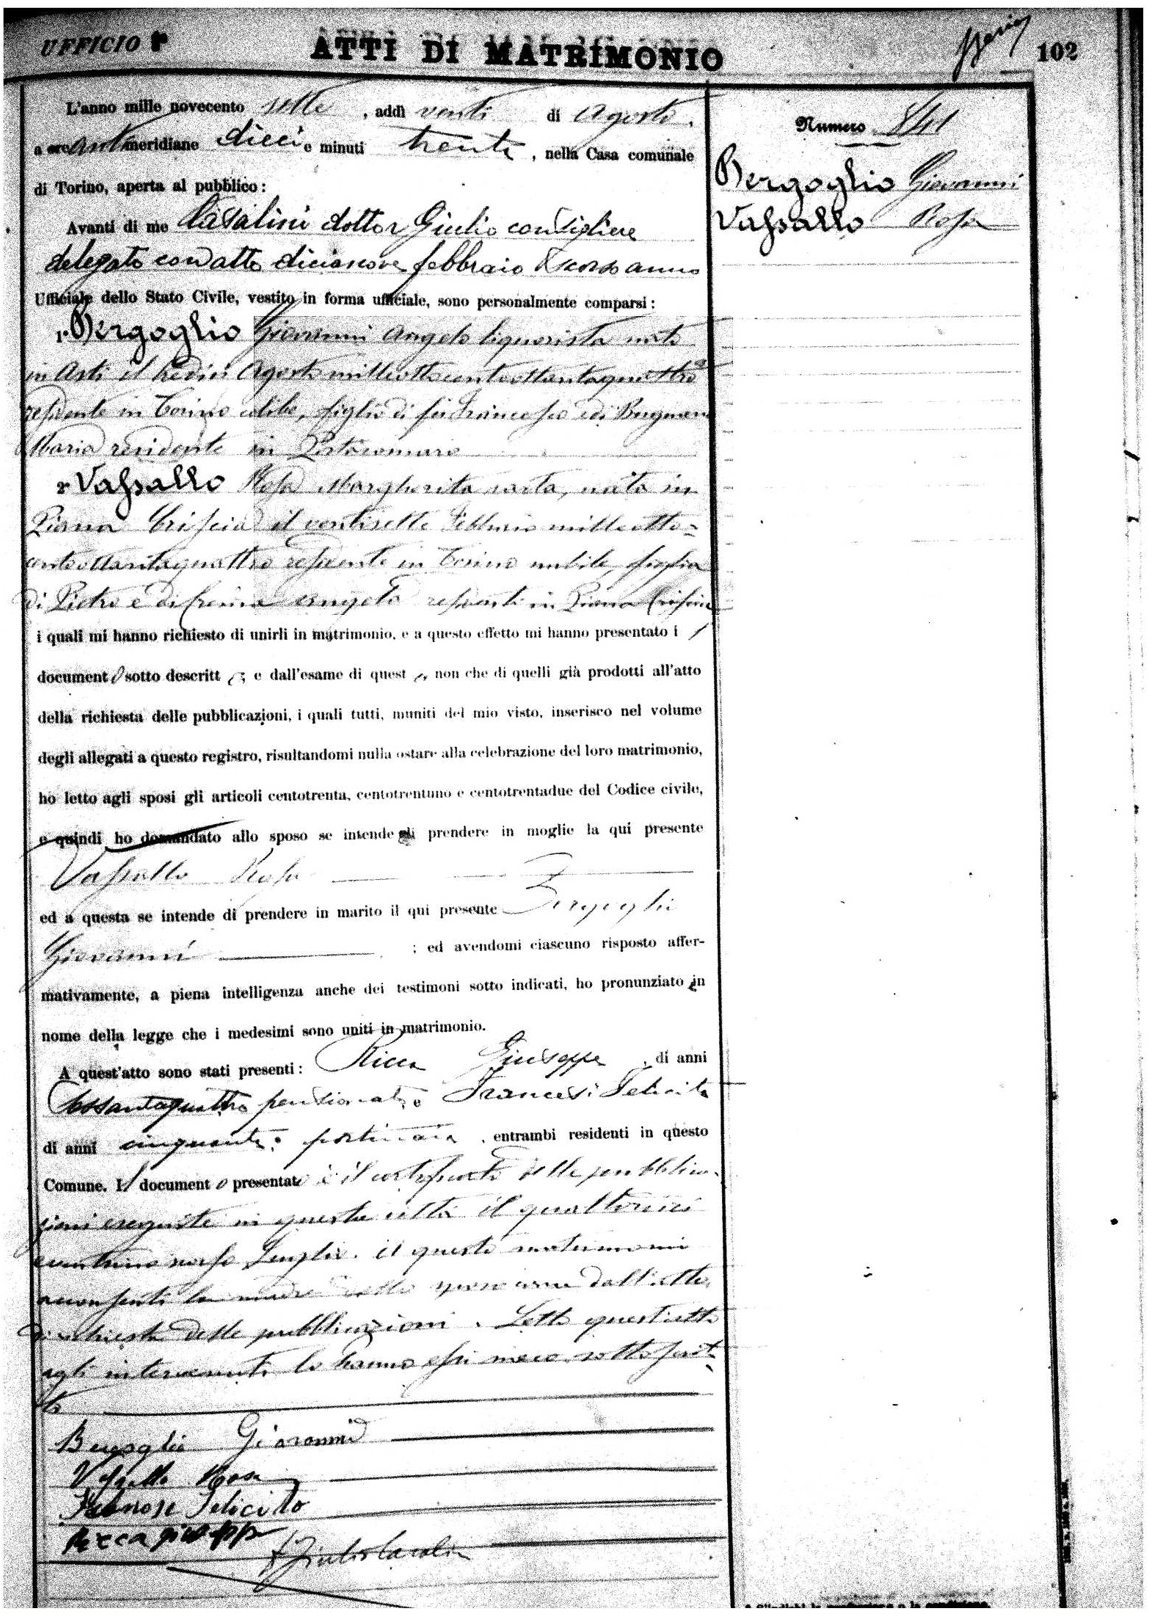 UFFICIO 1°
ATTI DI MATRIMONIO
102
L'anno mille novecento sette, addì venti di Agosto,
a ore antimeridiane dieci e minuti trenta, nella Casa comunale
di Torino, aperta al pubblico:
Avanti di me Casalini dottor Giulio consigliere
delegato con atto diciannove febbraio scorso anno
Ufficiale dello Stato Civile, vestito in forma ufficiale, sono personalmente comparsi:
1° Bergoglio Giovanni Angelo liquorista nato
in Asti il tredici Agosto milleottocentoottantaquattro
residente in Torino celibe, figlio di fu Francesco e di
Maria residente in Portacomaro
2° Vassallo Rosa Margherita sarta, nata in
Piana Crixia il ventisette Febbraio milleotto=
centoottantaquattro residente in Torino nubile, figlia
di Pietro e di Angela residenti in Piana Crixia
i quali mi hanno richiesto di unirli in matrimonio, e a questo effetto mi hanno presentato i
documento sotto descritto; e dall'esame di questo, non che di quelli già prodotti all'atto
della richiesta delle pubblicazioni, i quali tutti, muniti del mio visto, inserisco nel volume
degli allegati a questo registro, risultandomi nulla ostare alla celebrazione del loro matrimonio,
ho letto agli sposi gli articoli centotrenta, centotrentuno e centotrentadue del Codice civile,
e quindi ho domandato allo sposo se intende di prendere in moglie la qui presente
Vassallo Rosa
ed a questa se intende di prendere in marito il qui presente Bergoglio
Giovanni ; ed avendomi ciascuno risposto affer-
mativamente, a piena intelligenza anche dei testimoni sotto indicati, ho pronunziato in
nome della legge che i medesimi sono uniti in matrimonio.
A quest'atto sono stati presenti: Ricca Giuseppe, di anni
sessantaquattro pensionato, e Francesi Felicita
di anni cinquanta, portinaia, entrambi residenti in questo
Comune. Il documento presentato è il certificato delle pubblica-
zioni eseguite in questa città il quattordici
e ventuno scorso Luglio. A questo matrimonio
acconsentì la madre dello sposo come dall'atto
di richiesta delle pubblicazioni. Letto quest'atto
agli intervenuti lo hanno essi meco sottoscrit-
to
Bergoglio Giovanni
Vassallo Rosa
Felicita
Ricca Giuseppe
Giulio Casalini
Numero 841
Bergoglio Giovanni
Vassallo Rosa